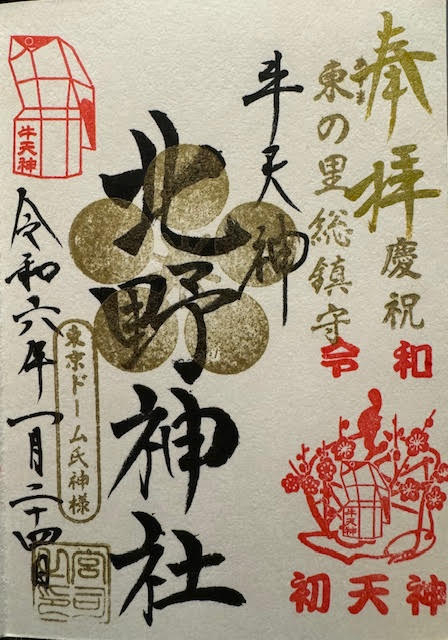 奉拝
慶祝
東の里総鎮守
あずま
令和
牛天神
初天神
牛天神
北野神社
東京ドーム氏神様
牛天神
令和六年一月二十四日
宮司之印